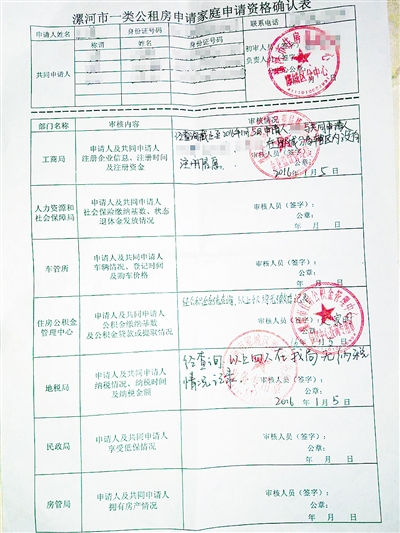 漯河市一类公租房申请家庭申请资格确认表
申请人姓名
身份证号码
联系电话
共同申请人
称谓
姓名
身份证号码
初审人员
负责人
部门名称
审核内容
审核情况
工商局
申请人及共同申请人
注册企业信息、注册时间
及注册资金
经查询截止至2016年1月5日申请人
与共同申请人
注册信息
2016年1月5日
人力资源和
社会保障局
申请人及共同申请人
社会保险缴纳基数、状态
退休金发放情况
审核人员(签字):
公章:
年 月 日
车管所
申请人及共同申请人
车辆情况、登记时间
及购车价格
审核人员(签字):
公章:
年 月 日
住房公积金
管理中心
申请人及共同申请人
公积金缴纳基数
及公积金贷款或提取情况
月5日
地税局
申请人及共同申请人
纳税情况、纳税时间
及纳税金额
经查询,以上四人在我局无纳税
情况记录
2016年1月5日
民政局
申请人及共同申请人
享受低保情况
审核人员(签字):
公章:
年 月 日
房管局
申请人及共同申请人
拥有房产情况
审核人员(签字):
公章:
年 月 日